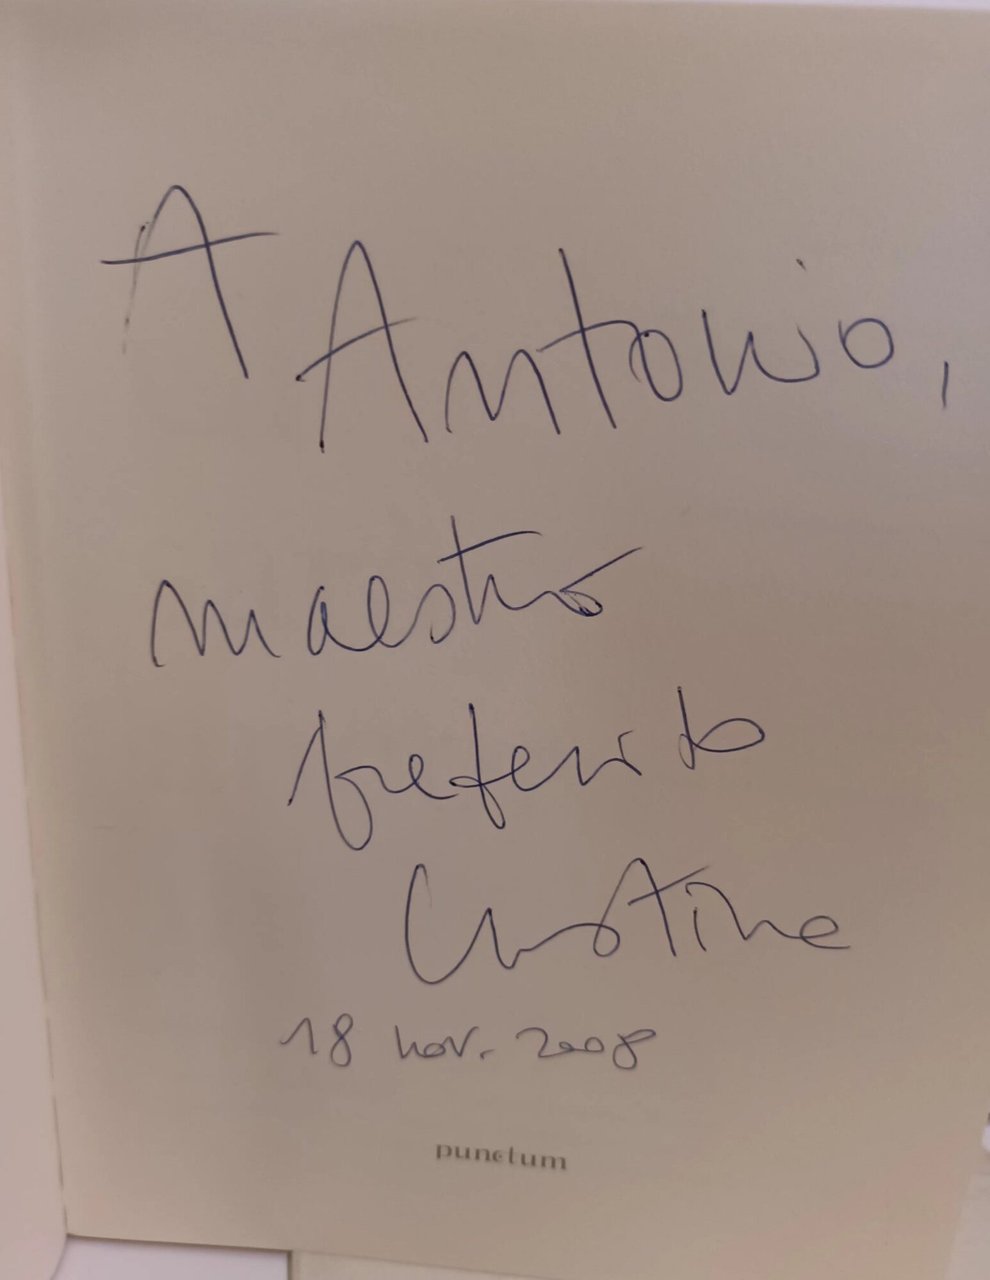 A Antonio,
maestro
preferito
Cristine
18 nov. 2008
punctum